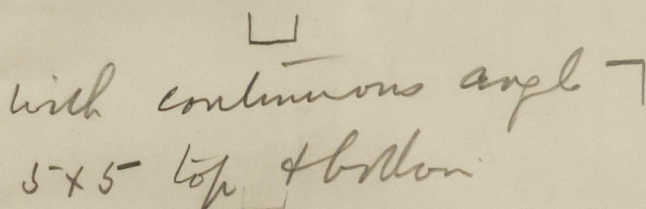 with continuous angle
5x5 top & bottom